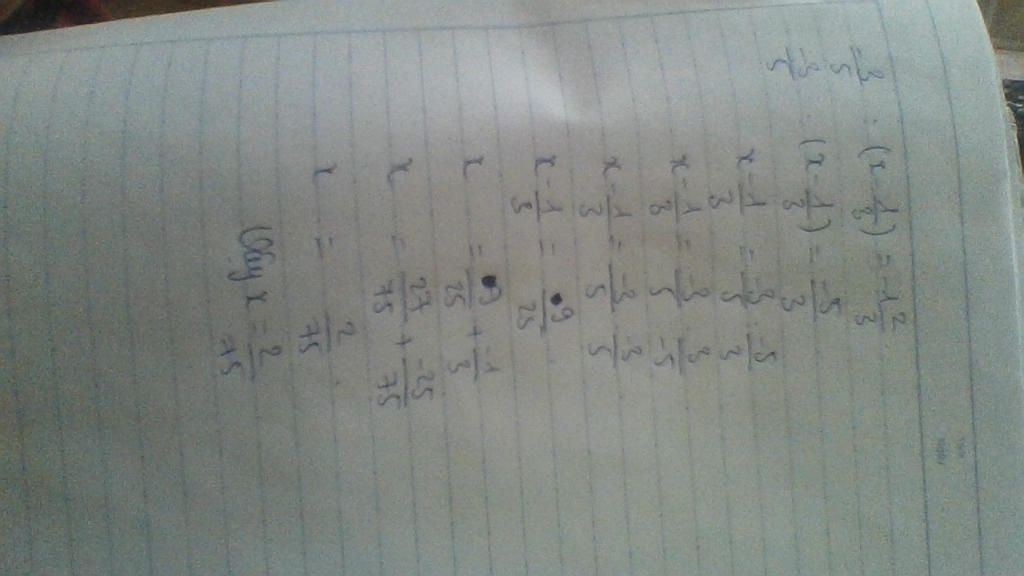 -3/5 : (x - 1/3) = -1 2/3
-3/5 : (x - 1/3) = -5/3
x - 1/3 = -3/5 : -5/3
x - 1/3 = -3/5 . 3/-5
x - 1/3 = -3/5 . -3/5
x - 1/3 = 9/25
x = 9/25 + -1/3
x = 27/75 + -25/75
x = 2/75
Vậy x = 2/75